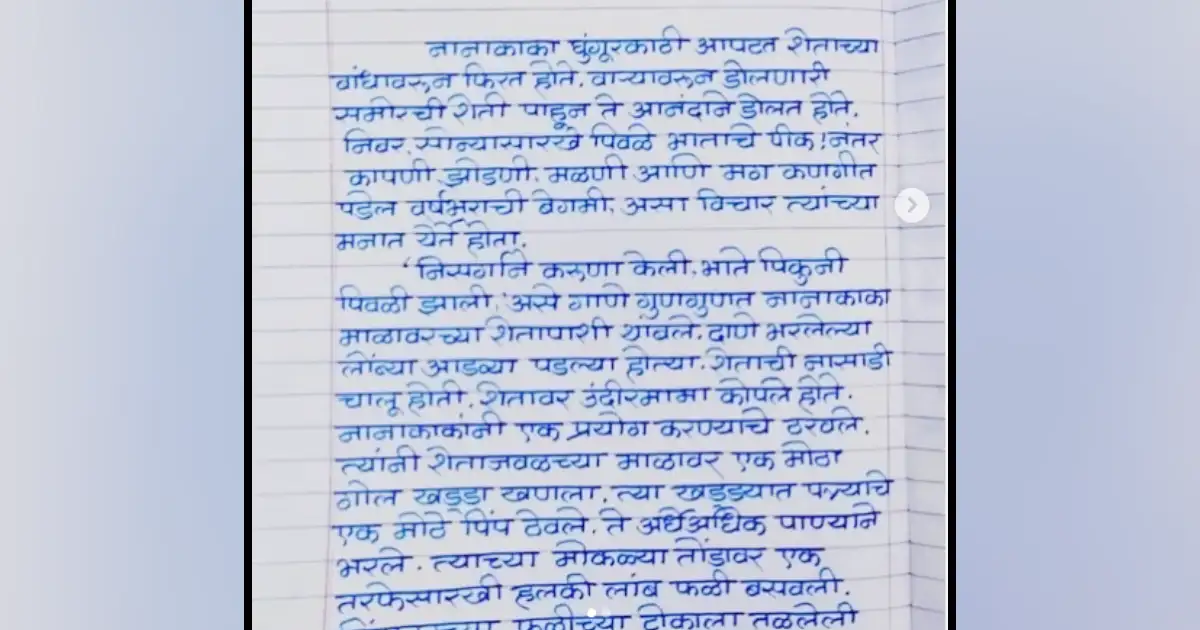 नानाकाका घुंगूरकाठी आपटत शेताच्या
बांधावरून फिरत होते. वाऱ्यावरून डोलणारी
समोरची शेती पाहून ते आनंदाने डोलत होते.
निवर, सोन्यासारखे पिवळे भाताचे पीक! नंतर
कापणी, झोडणी, मळणी आणि मग कणगीत
पडेल वर्षभराची बेगमी, असा विचार त्यांच्या
मनात येत होता.
'निसर्गाने करुणा केली, भाते पिकुनी
पिवळी झाली,' असे गाणे गुणगुणत नानाकाका
माळावरच्या शेतापाशी थांबले. दाणे भरलेल्या
लोंब्या आडव्या पडल्या होत्या. शेताची नासाडी
चालू होती. शेतावर उंदीरमामा कोपले होते.
नानाकाकांनी एक प्रयोग करण्याचे ठरवले.
त्यांनी शेताजवळच्या माळावर एक मोठा
गोल खड्डा खणला. त्या खड्ड्यात पत्र्याचे
एक मोठे पिंप ठेवले. ते अर्धेअधिक पाण्याने
भरले. त्याच्या मोकळ्या तोंडावर एक
तरफेसारखी हलकी लांब फळी बसवली.
फळीच्या टोकाला तळलेली